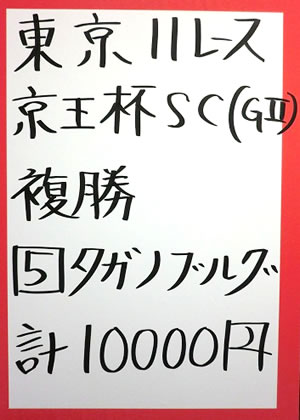 東京11レース
京王杯SC(GⅡ)
複勝
5タガノブルグ
計10000円